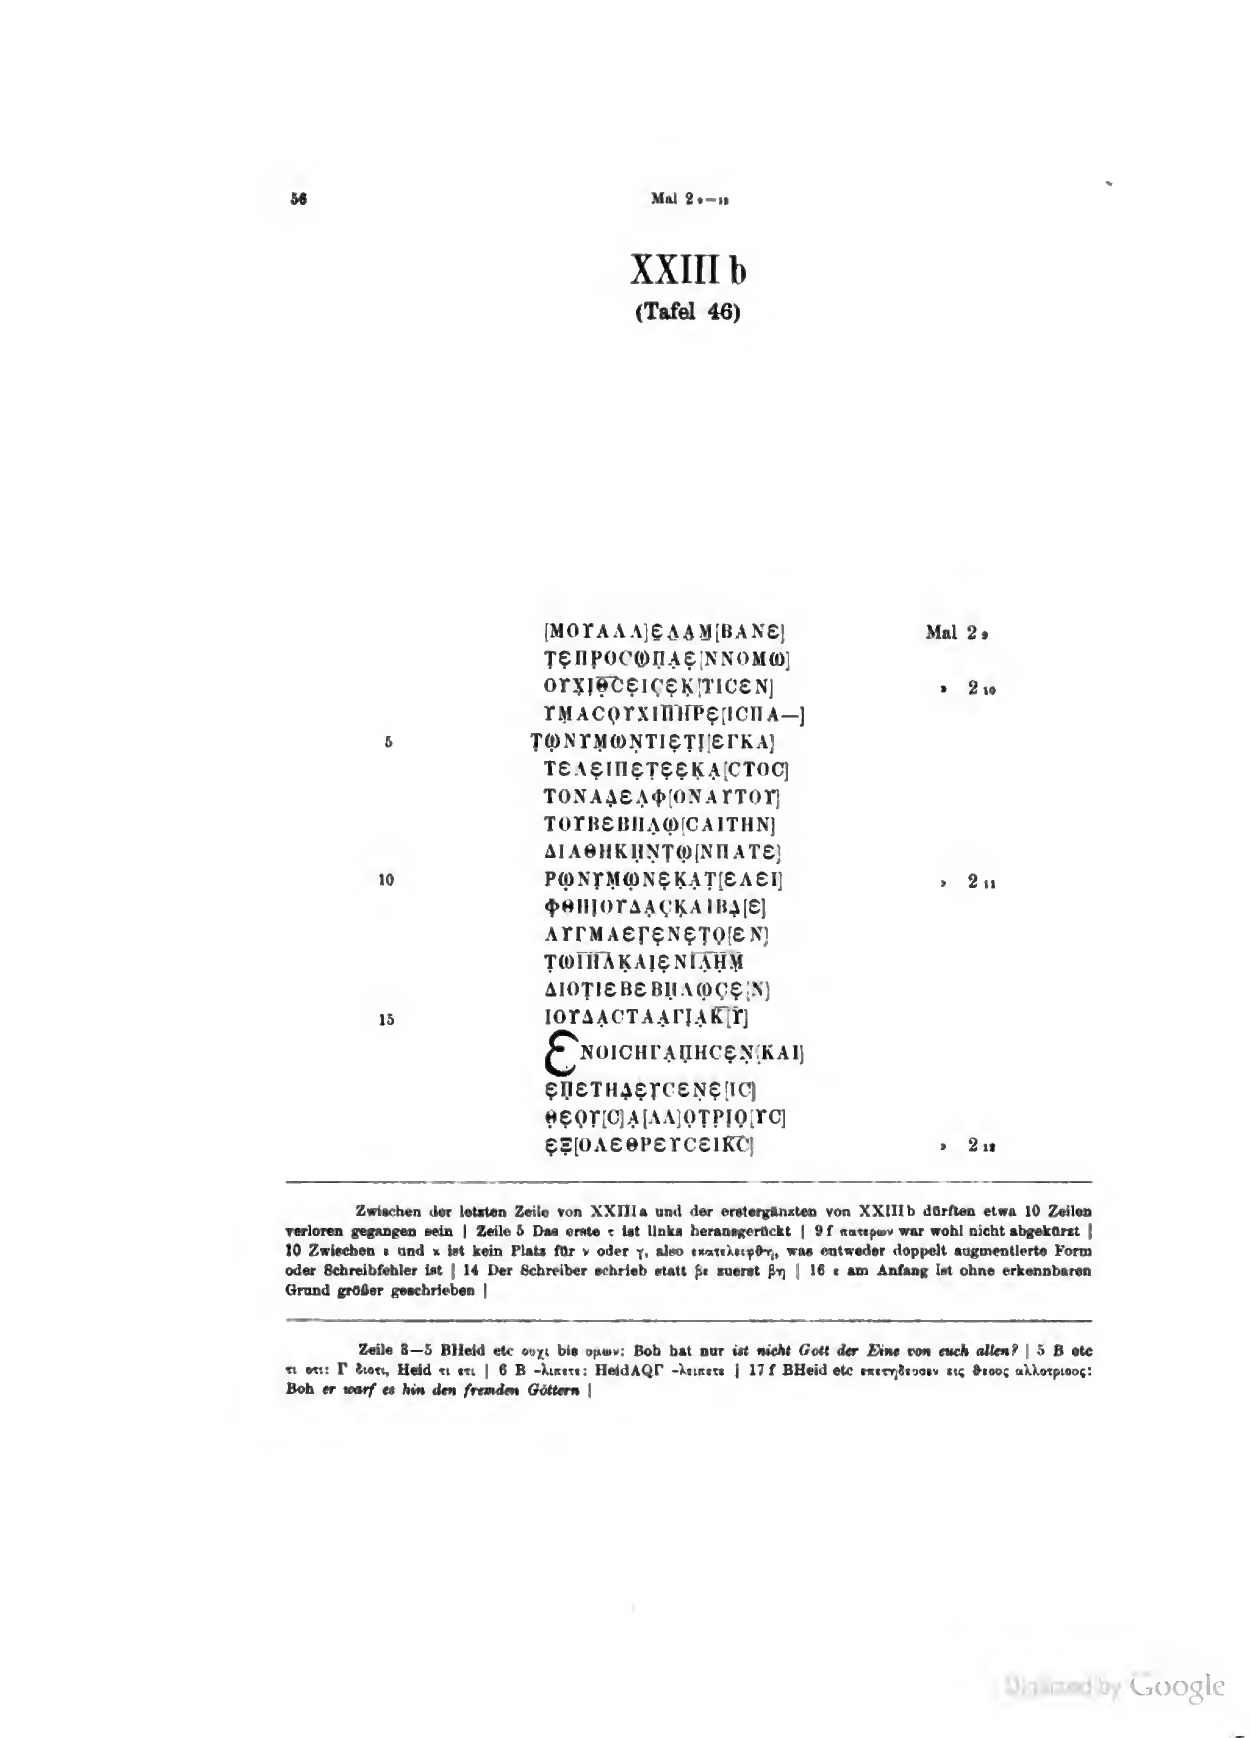 56 Mal 2 9—12
XXIII b
(Tafel 46)
[ΜΟΥΑΛΛ]Ε̣Λ̣Α̣Μ̣[ΒΑΝΕ] Mal 2 9
Τ̣Ε̣ΠΡ̣ΟϹΩ̣Π̣Α̣Ε̣[ΝΝΟΜΩ]
ΟΥΧ̣Ι̣Θ̣̅Ϲ̅Ε̣ΙϹ̣Ε̣Κ̣[ΤΙϹΕΝ] » 2 10
ΥΜ̣ΑϹΟ̣ΥΧΙΠ̅Η̅Ρ̅Ε̣[ΙϹΠΑ—]
5 ΤΩ̣ΝΥΜ̣Ω̣Ν̣ΤΙΕ̣Τ̣Ι̣[ΕΓΚΑ]
ΤΕΛΕ̣ΙΠΕ̣Τ̣Ε̣Ε̣Κ̣Α̣[ϹΤΟϹ]
ΤΟΝΑΔ̣ΕΛ̣Φ[ΟΝΑΥΤΟΥ]
ΤΟΥΒΕΒΗΛ̣Ω̣[ϹΑΙΤΗΝ]
ΔΙΑΘΗΚΗ̣Ν̣Τ̣Ω̣[ΝΠΑΤΕ]
10 ΡΩ̣ΝΥ̣Μ̣Ω̣ΝΕ̣Κ̣Α̣Τ̣[ΕΛΕΙ] » 2 11
ΦΘΗΙΟΥΔΑ̣Ϲ̣Κ̣ΑΙΒΔ̣[Ε]
ΛΥΓΜΑΕΓ̣Ε̣ΝΕ̣Τ̣Ο̣[ΕΝ]
Τ̣ΩΙ̅Η̅Λ̅Κ̣ΑΙ̣Ε̣ΝΙ̅Λ̣̅Η̣̅Μ̣̅
ΔΙΟΤ̣ΙΕΒΕΒΗ̣ΛΩ̣Ϲ̣Ε̣[Ν]
15 ΙΟΥΔΑ̣ϹΤΑΑ̣ΓΙ̣Α̣Κ̅[Υ̅]
ΕΝΟΙϹΗΓΑ̣Π̣ΗϹΕ̣Ν̣[ΚΑΙ]
Ε̣Π̣ΕΤΗΔ̣Ε̣ΥϹΕΝΕ̣[ΙϹ]
Θ̣Ε̣Ο̣Υ̣[Ϲ]Α̣[ΛΛ]Ο̣Τ̣Ρ̣Ι̣Ο̣[ΥϹ]
Ε̣Ξ̣[ΟΛΕΘΡΕΥϹΕΙΚ̅Ϲ̅] » 2 12
Zwischen der letzten Zeile von XXIIIa und der erstergänzten von XXIIIb dürften etwa 10 Zeilen
verloren gegangen sein | Zeile 5 Das erste τ ist links herausgerückt | 9 f πατερων war wohl nicht abgekürzt |
10 Zwischen ε und κ ist kein Platz für ν oder γ, also εκατελειφθη, was entweder doppelt augmentierte Form
oder Schreibfehler ist | 14 Der Schreiber schrieb statt βε zuerst βη | 16 ε am Anfang ist ohne erkennbaren
Grund größer geschrieben |
Zeile 3—5 BHeid etc ουχι bis υμων: Boh hat nur ist nicht Gott der Eine von euch allen? | 5 B etc
τι οτι: Γ διοτι, Heid τι ετι | 6 B -λιπετε: HeidAQΓ -λειπετε | 17 f BHeid etc επετηδευσεν εις θεους αλλοτριους:
Boh er warf es hin den fremden Göttern |
Digitized by Google